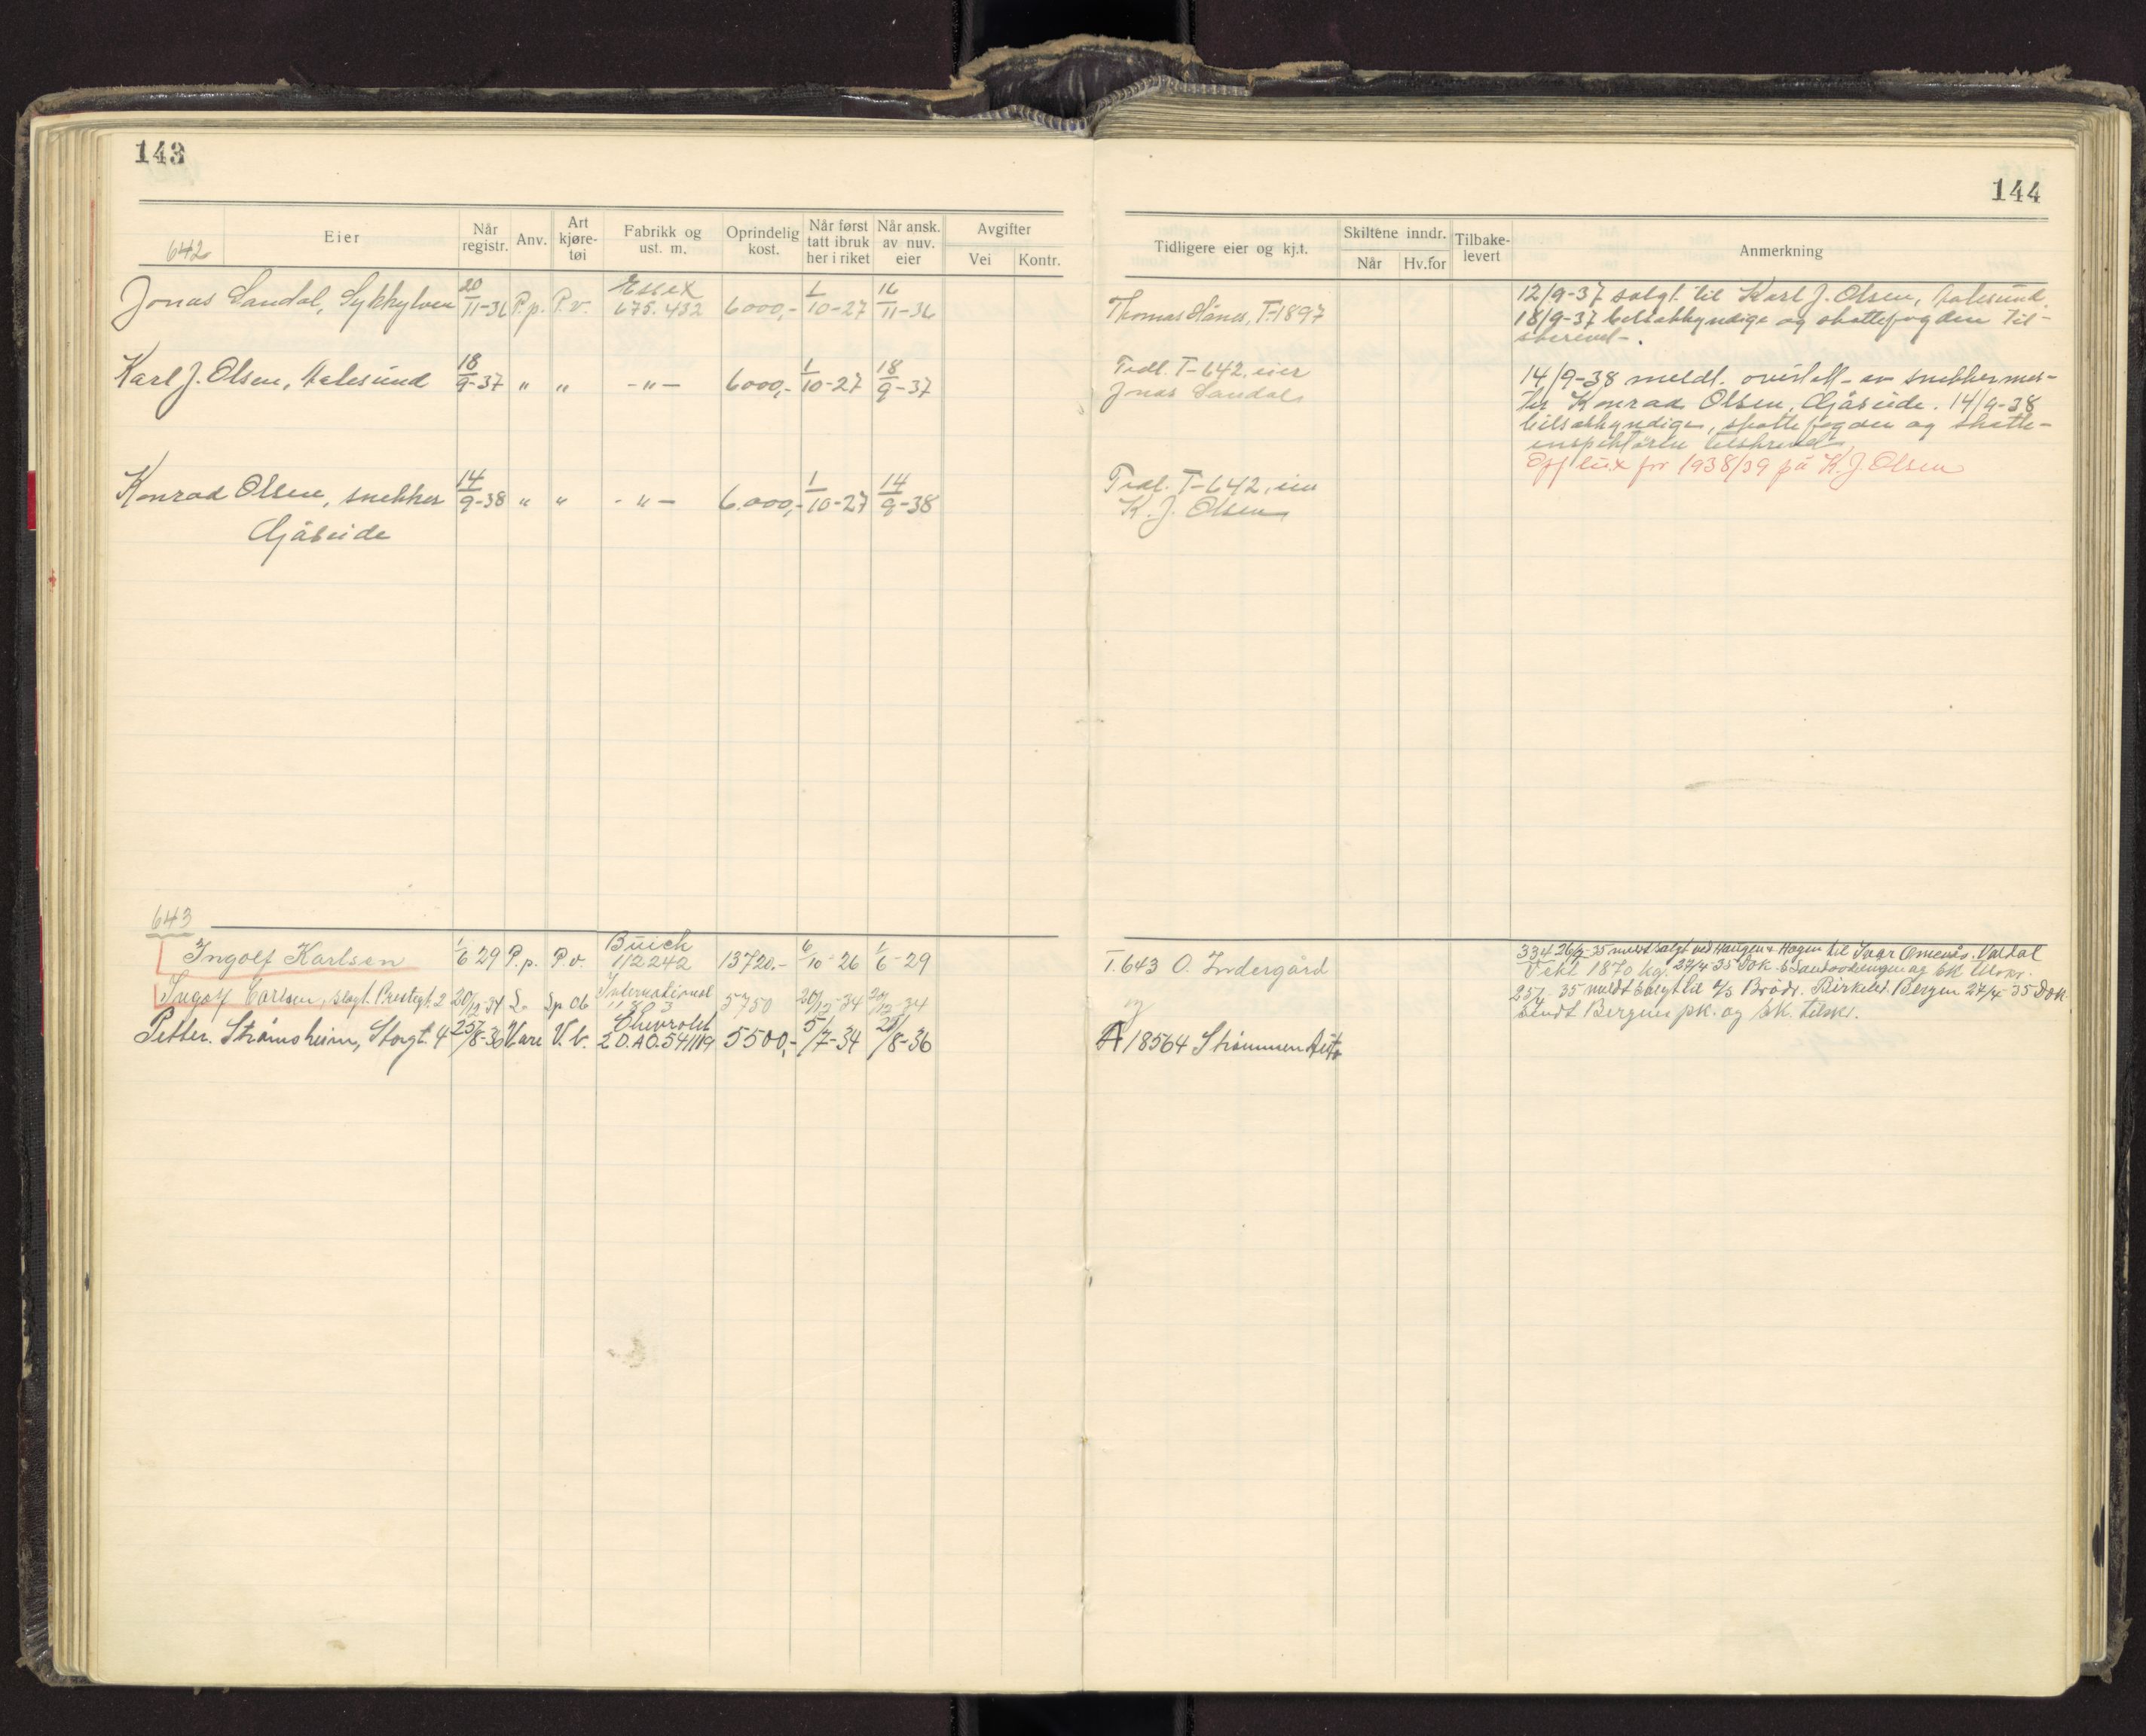 143
Eier Når registr. Anv. Art kjøre-tøi Fabrikk og ust. m. Oprindelig kost. Når først tatt ibruk her i riket Når ansk. av nuv. eier Avgifter Vei Kontr.
642
Jonas Sandal, Sykkylven 20/11-36 P.p. P.v. Essex 675.432 6000,- 1/10-27 16/11-36
Karl J. Olsen, Aalesund 18/9-37 " " -"- 6000,- 1/10-27 18/9-37
Konrad Olsen, snekker 14/9-38 " " -"- 6.000,- 1/10-27 14/9-38
Gåseide
643
Ingolf Karlsen 1/6 29 P.p. P.v. Buick 112242 13720.- 6/10-26 1/6-29
Ingolf Carlsen, slagt. Prestegt. 2 20/12-34 L. International 5750 20/12-34 20/12-34
Petter Strømsheim, Storgt. 4 25/8-36 Vare V.b. Chevrolet 5500,- 5/7-34 25/8-36
144
Tidligere eier og kj.t. Skiltene inndr. Når Hv.for Tilbake-levert Anmerkning
Thomas T-1897
12/9-37 solgt til Karl J. Olsen, Aalesund.
18/9-37 bilsakkyndige og skattefogden til-
skrevet.
Tidl. T-642, eier
Jonas Sandal
14/9-38 meldt overlatt snekkermes-
ter Konrad Olsen, Gåseide. 14/9-38
bilsakkyndige, skattefogden og skatte-
inspektøren tilskrevet
Opf lux for 1938/39 på K. J. Olsen
Tidl. T-642, eier
K. J. Olsen
T. 643 O. Indergård
26/3-35 meldt solgt ved Haugen & Hagen til Ivar Omenås. Valdal
Vekt 1870 kg. 27/4 35 Dok.
25/4 35 meldt solgt til A/S Brødr. Birkeland Bergen 27/4-35 Dok
sendt Bergens pk. og sk. tilskr.
ny
A 18564 Strømmen Auto